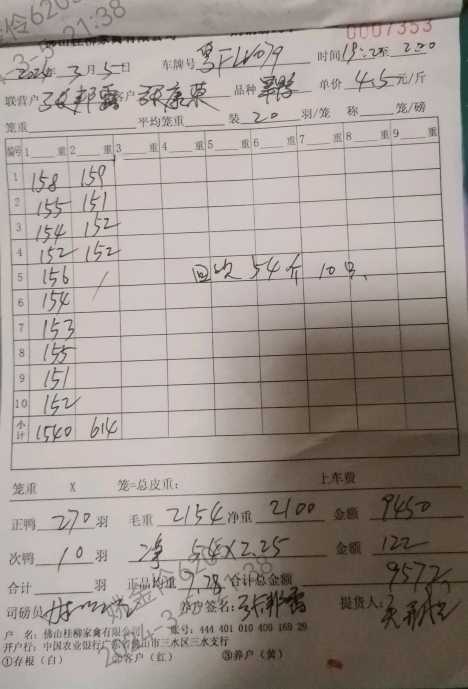 0007353
2024年3月5日 车牌号 时间
联营户 客户 品种 单价 4.5元/斤
笼重 平均笼重 装 20 羽/笼 称 笼/磅
编号 1 重 2 重 3 重 4 重 5 重 6 重 7 重 8 重 9 重
1 158 159
2 155 151
3 154 152
4 152 152
5 156 回次 54斤 10只
6 154
7 153
8 155
9 151
10 152
小计 1540 614
笼重 X 笼=总皮重: 上车费
正鸭 270 羽 毛重 2154 净重 2100 金额 9450
次鸭 10 羽 净 54×2.25 金额 122
合计 羽 正品均重 7.78 合计总金额 9572
司磅员 养户签名: 提货人:
户 名: 佛山桂柳家禽有限公司 账号: 444 401 010 400 169 29
开户行: 中国农业银行广东省佛山市三水区三水支行
①存根(白) ②客户(红) ③养户(黄)